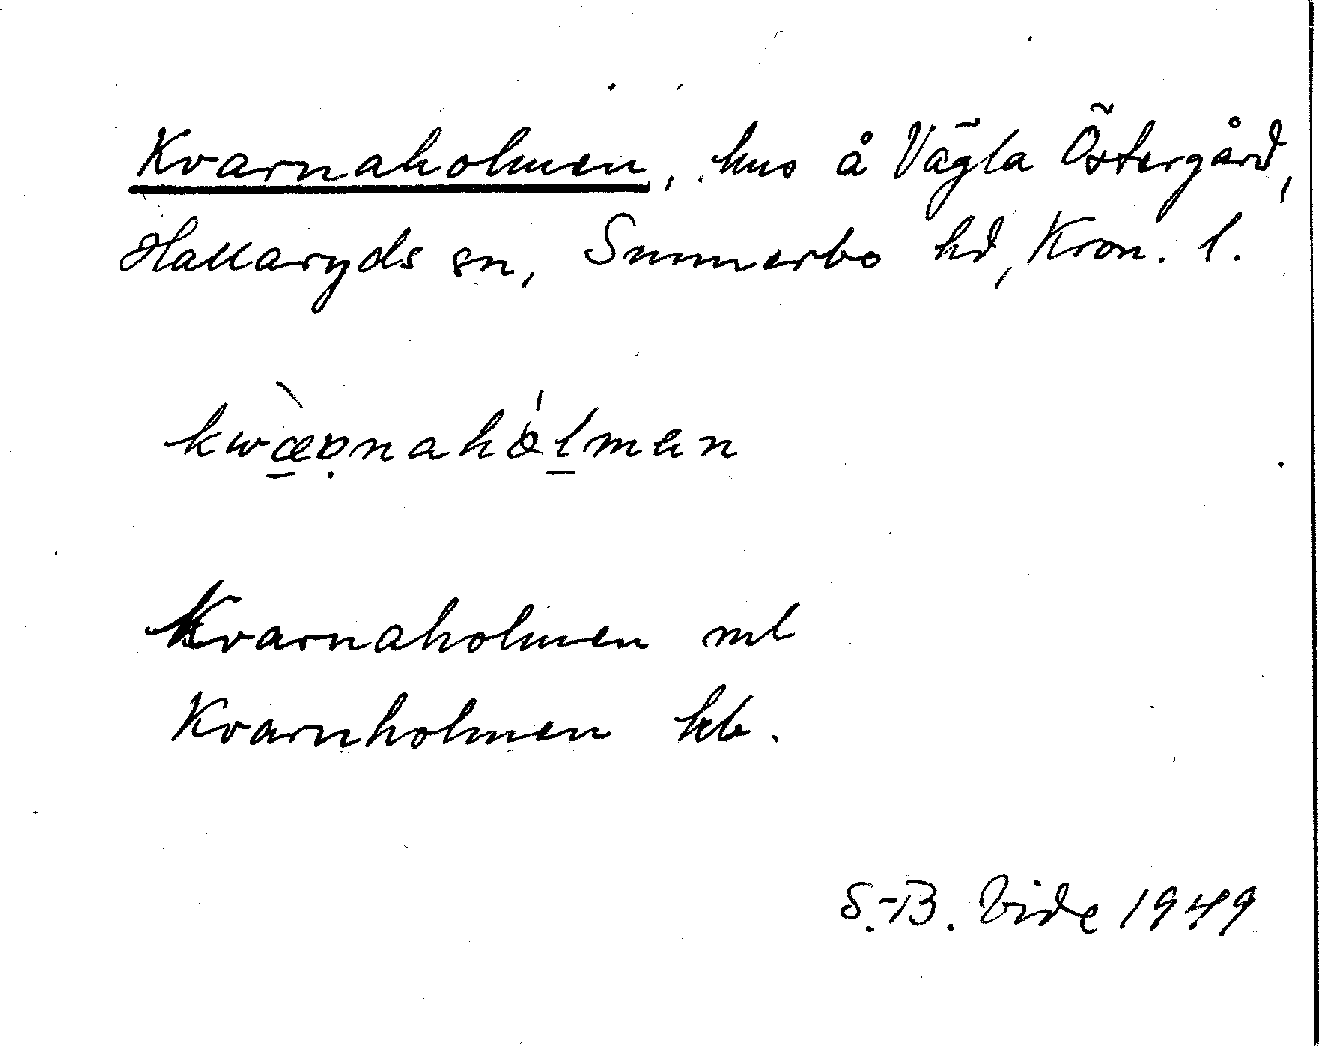 Kvarnaholmen, hus å Vägla Östergård,
Hallaryds sn, Sunnerbo hd, Kron. l.
kwæ̀ʀnahálman
Kvarnaholmen ml
Kvarnholmen kb.
S.-B. Vide 1949